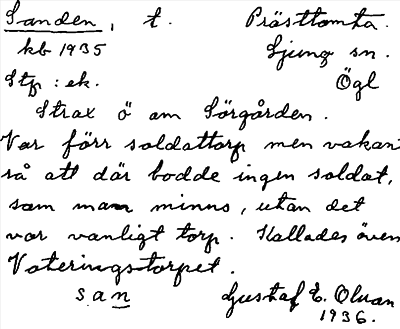 Sanden, t. Prästtomta.
kb 1935 Ljung sn.
Stp : ek. Ögl
Strax ö om Sörgården.
Var förr soldattorp men vakant
så att där bodde ingen soldat,
som man minns, utan det
var vanligt torp. Kallades även
Vateringstorpet.
san Gustaf E. Olsson
1936.